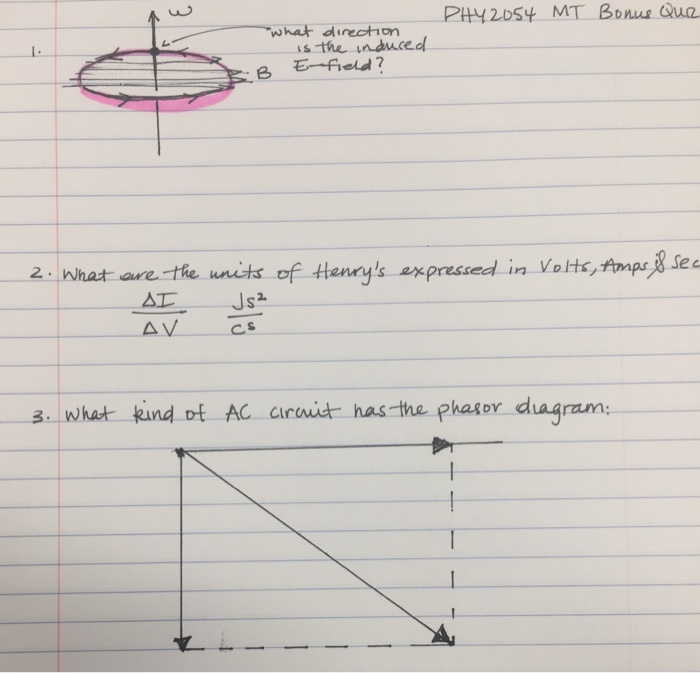 PHY2054 MT Bonus
ω
1.
what direction
is the induced
E-field?
B
2. What are the units of Henry's expressed in Volts, Amps & sec
ΔI
ΔV
Js²
3. What kind of AC circuit has the phasor diagram: